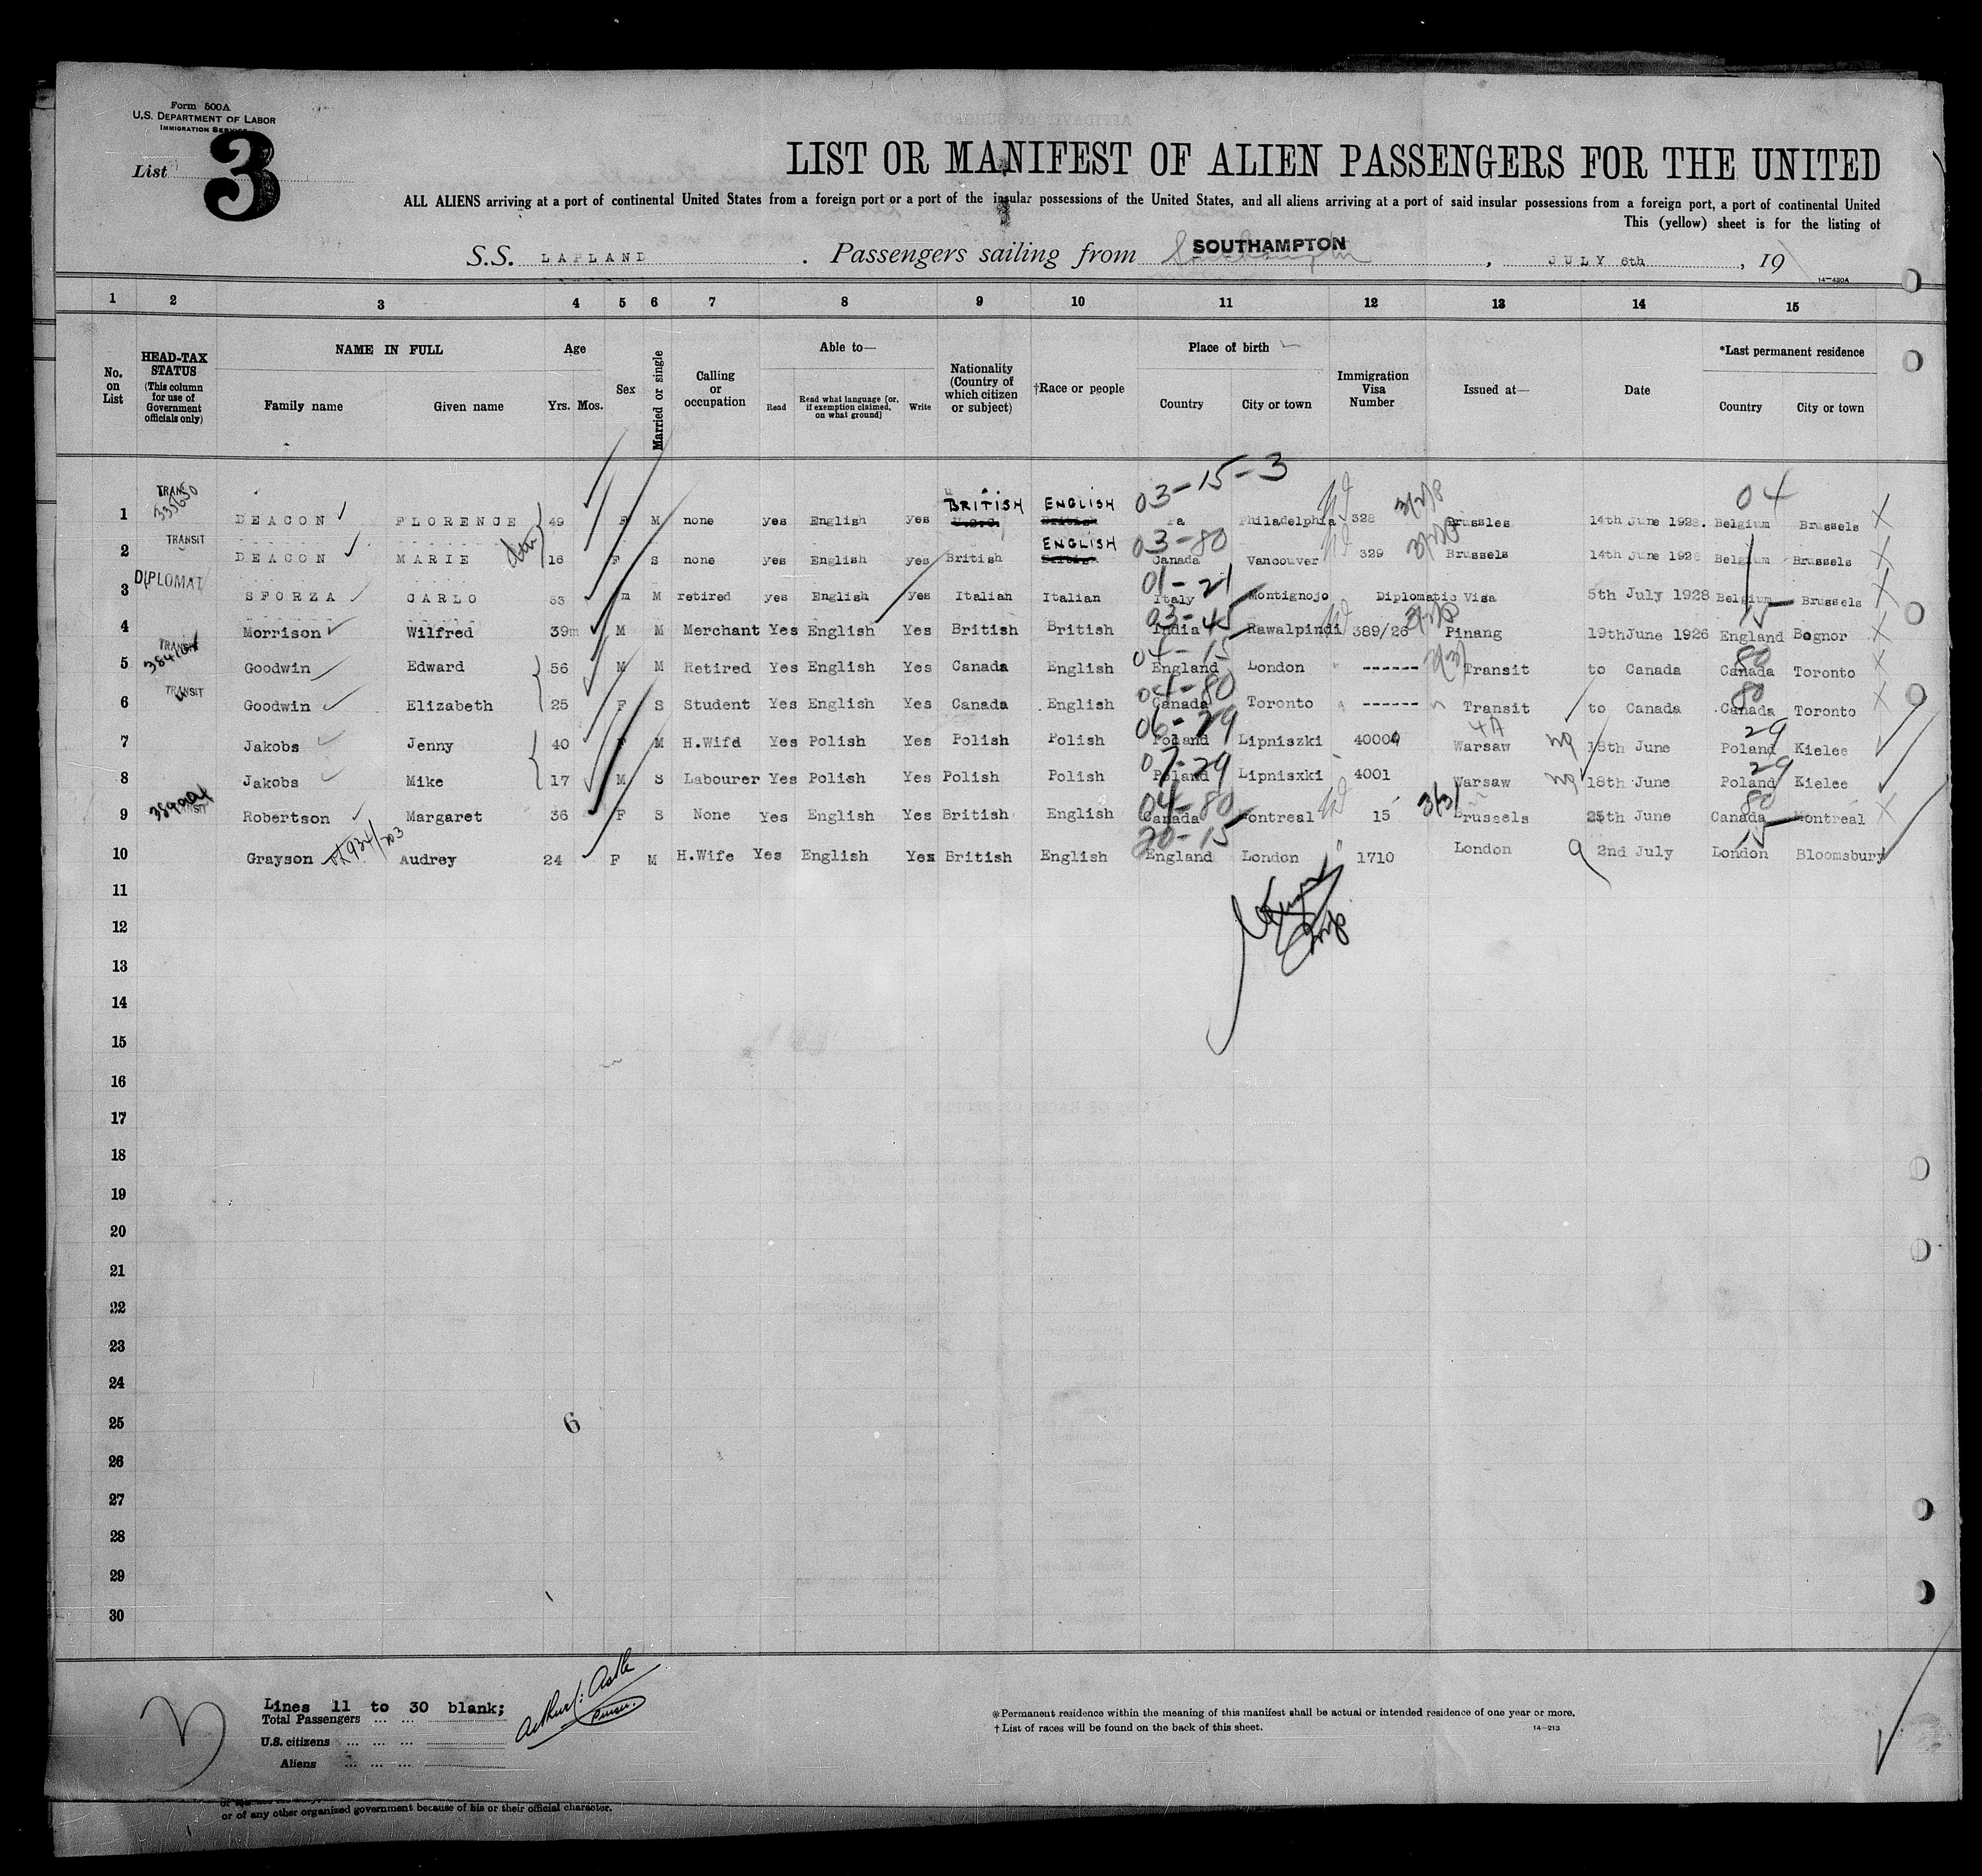 Form 500A
U.S. DEPARTMENT OF LABOR
IMMIGRATION SERVICE
List 3
LIST OR MANIFEST OF ALIEN PASSENGERS FOR THE UNITED
ALL ALIENS arriving at a port of continental United States from a foreign port or a port of the insular possessions of the United States, and all aliens arriving at a port of said insular possessions from a foreign port, a port of continental United
This (yellow) sheet is for the listing of
S.S. LAPLAND . Passengers sailing from SOUTHAMPTON Southampton , JULY 6th , 19
14—430A
1 2 3 4 5 6 7 8 9 10 11 12 13 14 15
No. on List
HEAD-TAX STATUS (This column for use of Government officials only)
NAME IN FULL
Family name Given name
Age
Yrs. Mos.
Sex
Married or single
Calling or occupation
Able to—
Read Read what language [or, if exemption claimed, on what ground] Write
Nationality (Country of which citizen or subject)
†Race or people
Place of birth
Country City or town
Immigration Visa Number
Issued at—
Date
*Last permanent residence
Country City or town
03-15-3 04
1 335650 DEACON FLORENCE 49 F M none yes English yes BRITISH U.S.C. ENGLISH British Pa Philadelphia 328 3/2/8 Brussles 14th June 1928. Belgium Brussels X
2 TRANSIT DEACON MARIE 16 F S none yes English yes British ENGLISH British 03-80 Canada Vancouver 329 Brussels 14th June 1928 Belgium Brussels X
3 DIPLOMAT SFORZA CARLO 53 m M retired yes English yes Italian Italian 01-21 Italy Montignojo Diplomatic Visa 5th July 1928 Belgium Brussels X
4 Morrison Wilfred 39m M M Merchant Yes English Yes British British 03-45 India Rawalpindi 389/26 Pinang 19thJune 1926 15 England Bognor X
5 TRANSIT Goodwin Edward 56 M M Retired Yes English Yes Canada English 04-15 England London " ------ 3(3) Transit to Canada 80 Canada Toronto X
6 TRANSIT Goodwin Elizabeth 25 F S Student Yes English Yes Canada English 04-80 Canada Toronto ------ Transit to Canada 80 Canada Toronto X
7 Jakobs Jenny 40 F M H.Wifd Yes Polish Yes Polish Polish 06-29 Poland Lipniszki 40004 4A Warsaw 18th June 29 Poland Kielee
8 Jakobs Mike 17 M S Labourer Yes Polish Yes Polish Polish 07-29 Poland Lipnisxki 4001 Warsaw 18th June 29 Poland Kielee
9 TRANSIT Robertson Margaret 36 F S None Yes English Yes British English 04-80 Canada Montreal 15 3/3/ Brussels 25th June 80 Canada Montreal X
10 Grayson 934/703 Audrey 24 F M H.Wife Yes English Yes British English 20-15 England London " 1710 London 2nd July 15 London Bloomsbury
11
12
13
14
15
16
17
18
19
20
21
22
23
24
25 6
26
27
28
29
30
Lines 11 to 30 blank;
Total Passengers ... ...
U.S. citizens ... ... ...
Aliens ... ... ...
Arthur: Astle
Purser.
* Permanent residence within the meaning of this manifest shall be actual or intended residence of one year or more.
† List of races will be found on the back of this sheet.
14—213
or of any other organized government because of his or their official character.